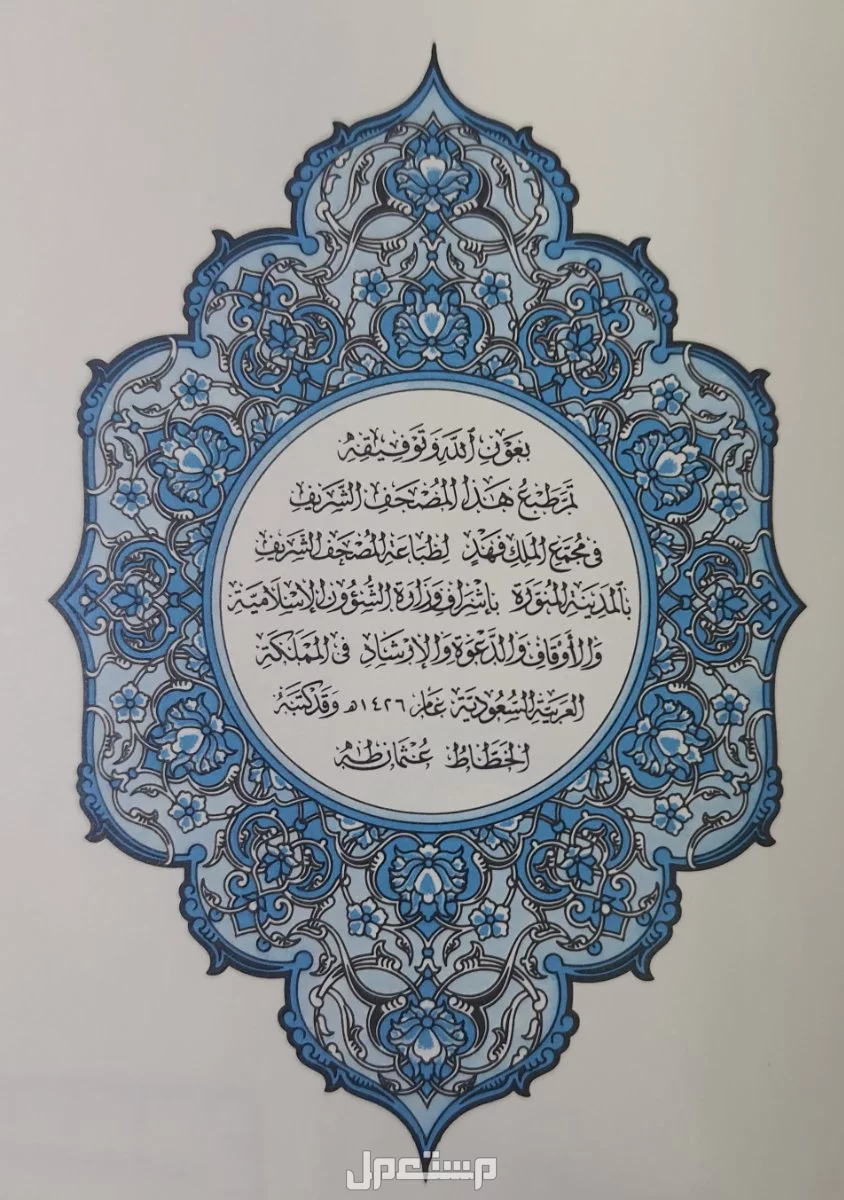 بِعَوْنِ ٱللَّهِ وَتَوْفِيقِهِ
تَمَّ طَبْعُ هَٰذَا المُصْحَفِ الشَّرِيفِ
فِي مُجَمَّعِ المَلِك فَهْدٍ لِطِبَاعَةِ المُصْحَفِ الشَّرِيفِ
بِالمَدِينَةِ المُنَوَّرَةِ بِإِشْرَافِ وِزَارَةِ الشُّؤُونِ الإِسْلَامِيَّةِ
وَالأَوْقَافِ وَالدَّعْوَةِ وَالإِرْشَادِ فِي المَمْلَكَةِ
العَرَبِيَّةِ السُّعُودِيَّةِ عَامَ ١٤٢٦هـ وَقَدْ كَتَبَهُ
الخَطَّاطُ عُثْمَان طٰهٰ
مستعمل